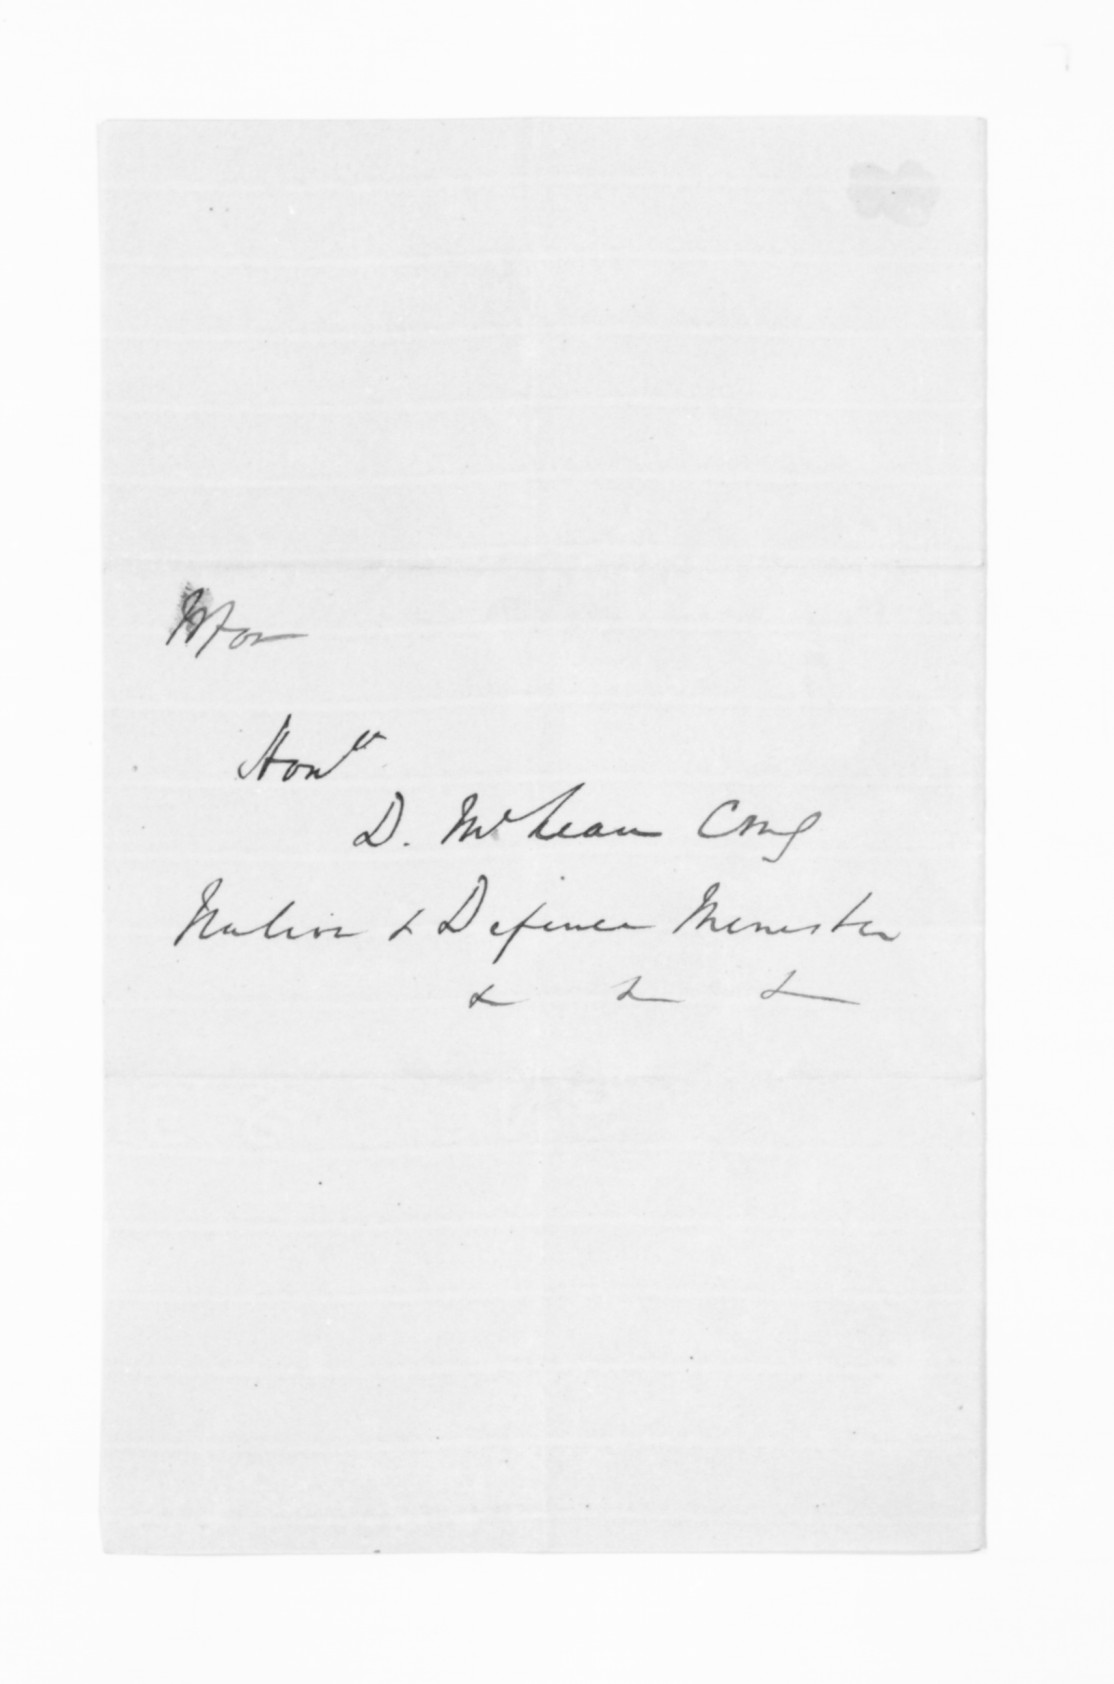 Honle
D. McLean Esq
Native & Defence Minister
& & &